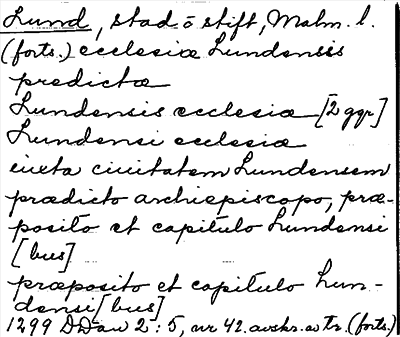 Lund, stad o stift, Malm. l.
(forts.) ecclesiæ Lundensis
predictæ
Lundensis ecclesiæ [2 ggr]
Lundensi ecclesiæ
iuxta ciuitatem Lundensem
prædicto archiepiscopo, præ-
posito et capitulo Lundensi
[bus]
præposito et capitulo Lun-
densi [bus]
1299 DD 2:5, nr 42. avskr. av tr. (forts.)